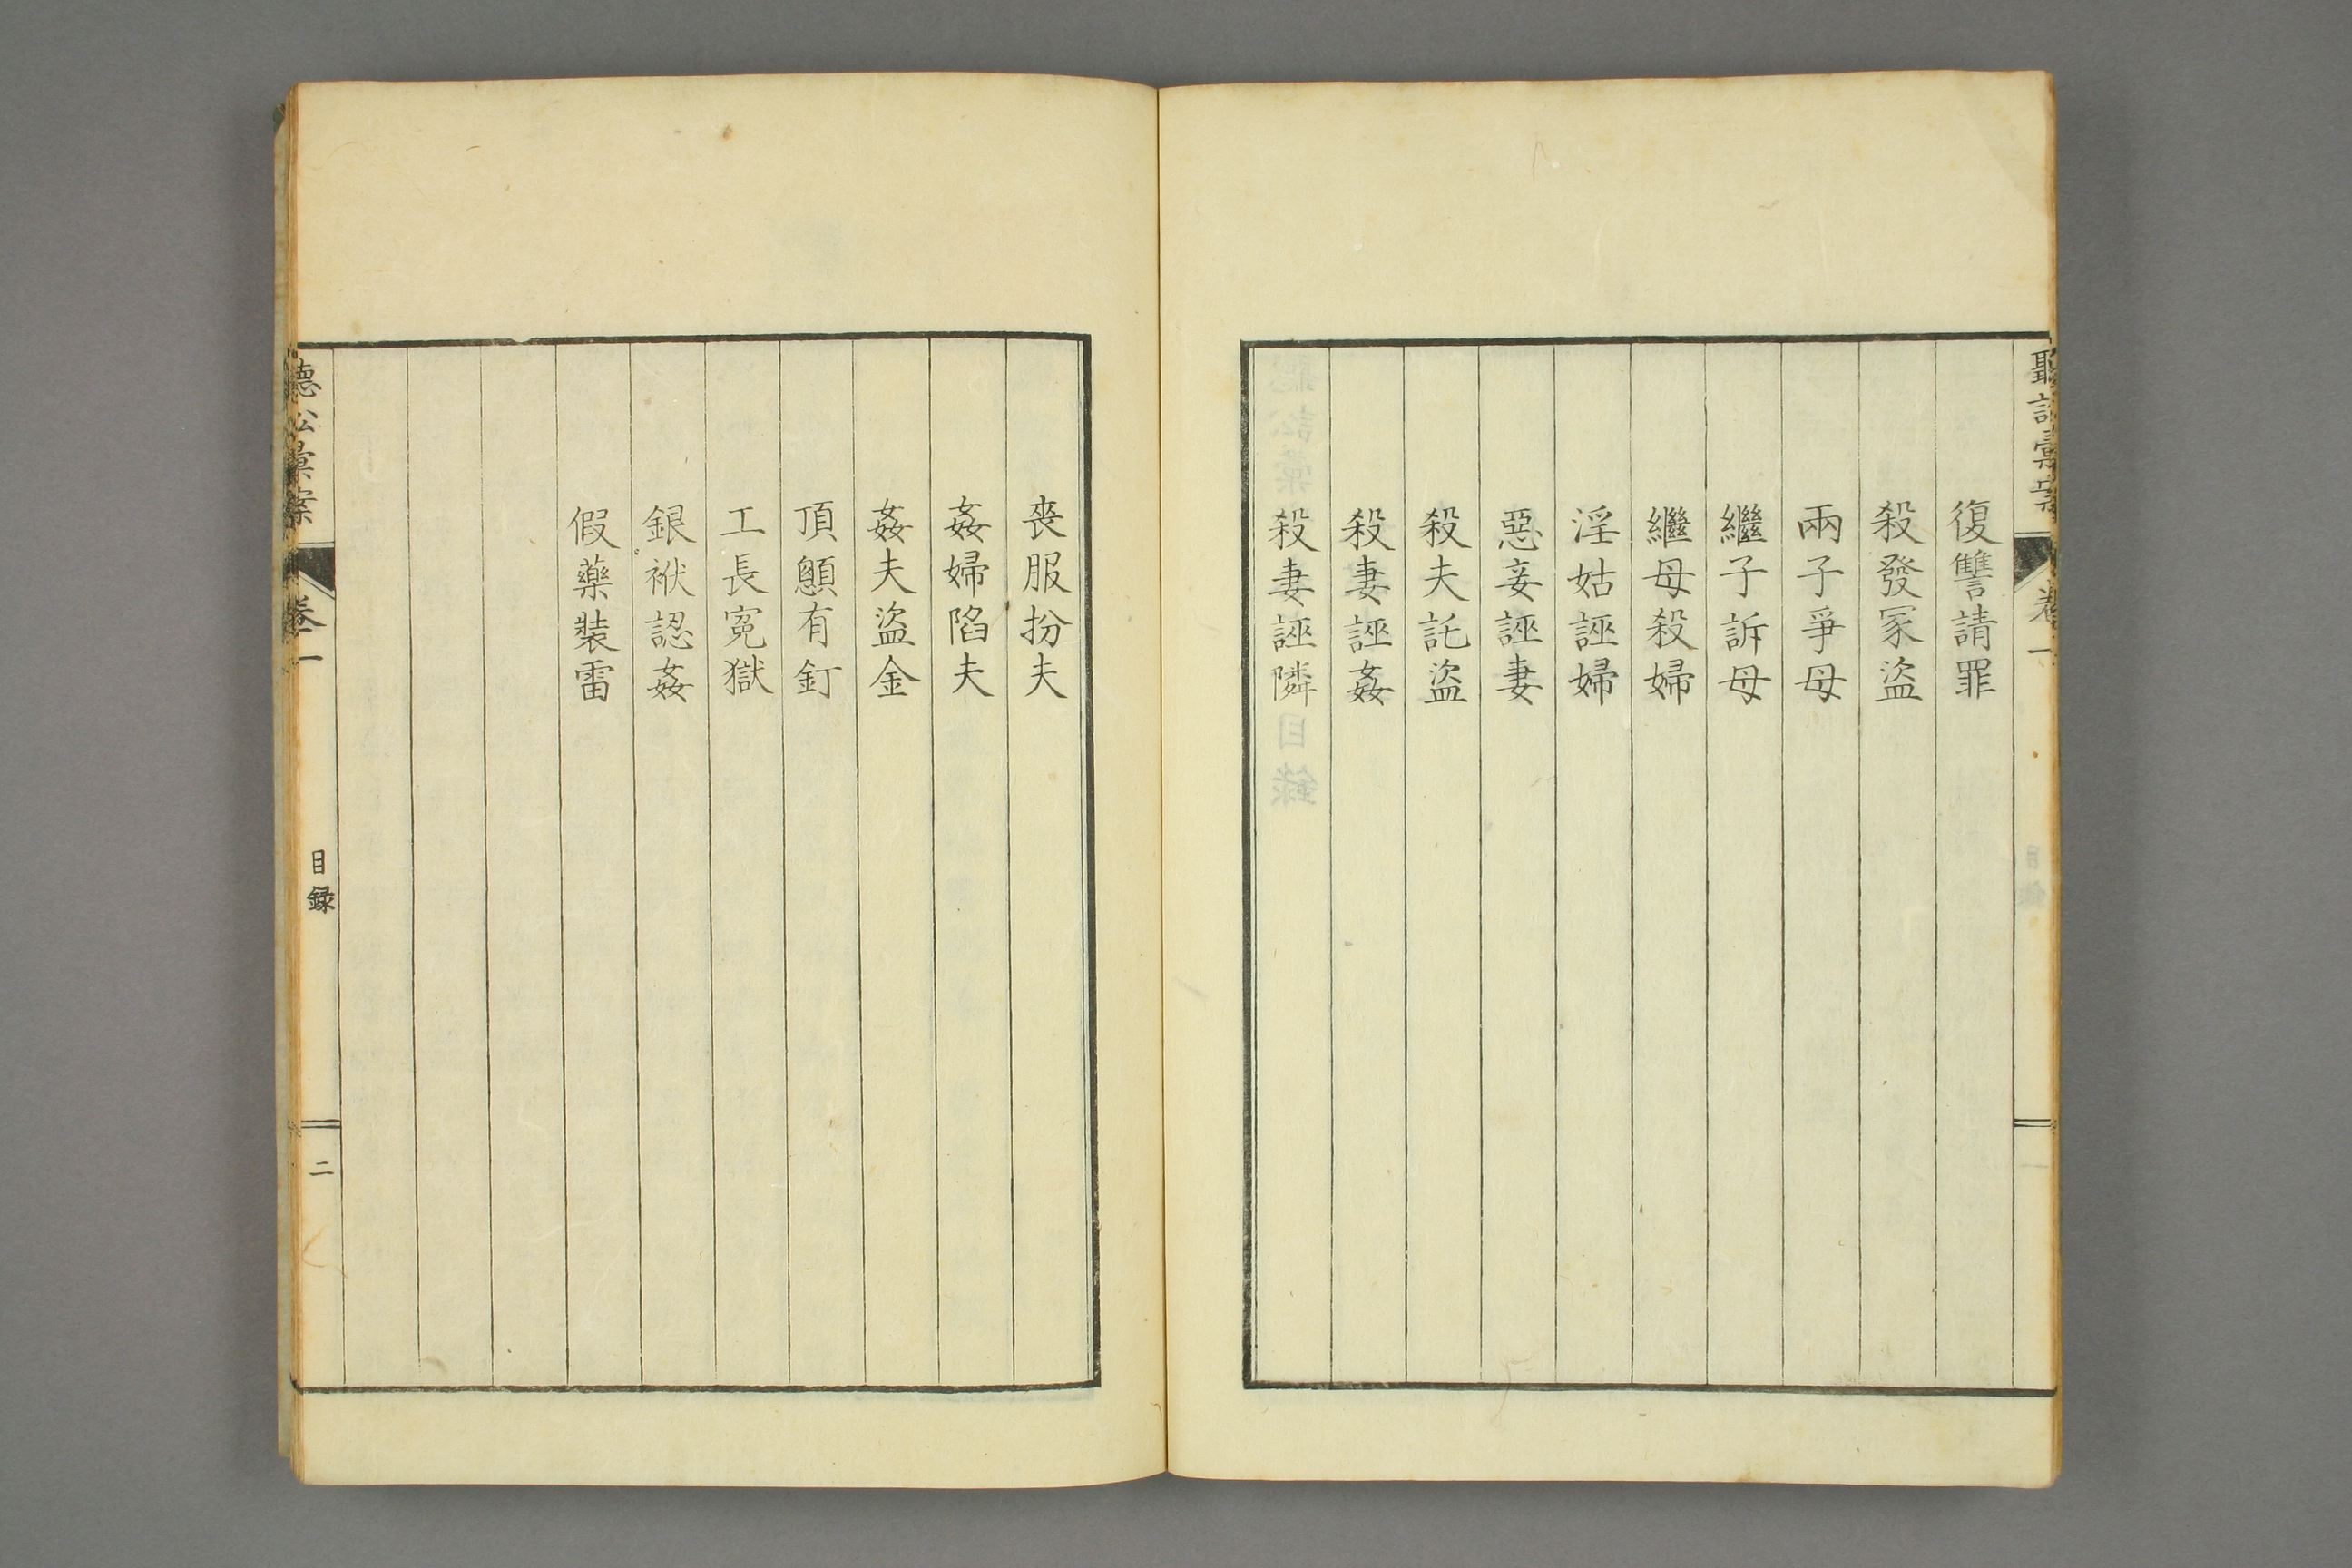 聽訟彙案
卷一
復讐請罪
殺發冢盜
兩子爭母
繼子訴母
繼母殺婦
淫姑誣婦
惡妾誣妻
殺夫託盜
殺妻誣姦
殺妻誣隣
喪服扮夫
姦婦陷夫
姦夫盜金
頂顖有釘
工長寃獄
銀袱認姦
假藥裝雷
聽訟彙案
卷一
目錄
二